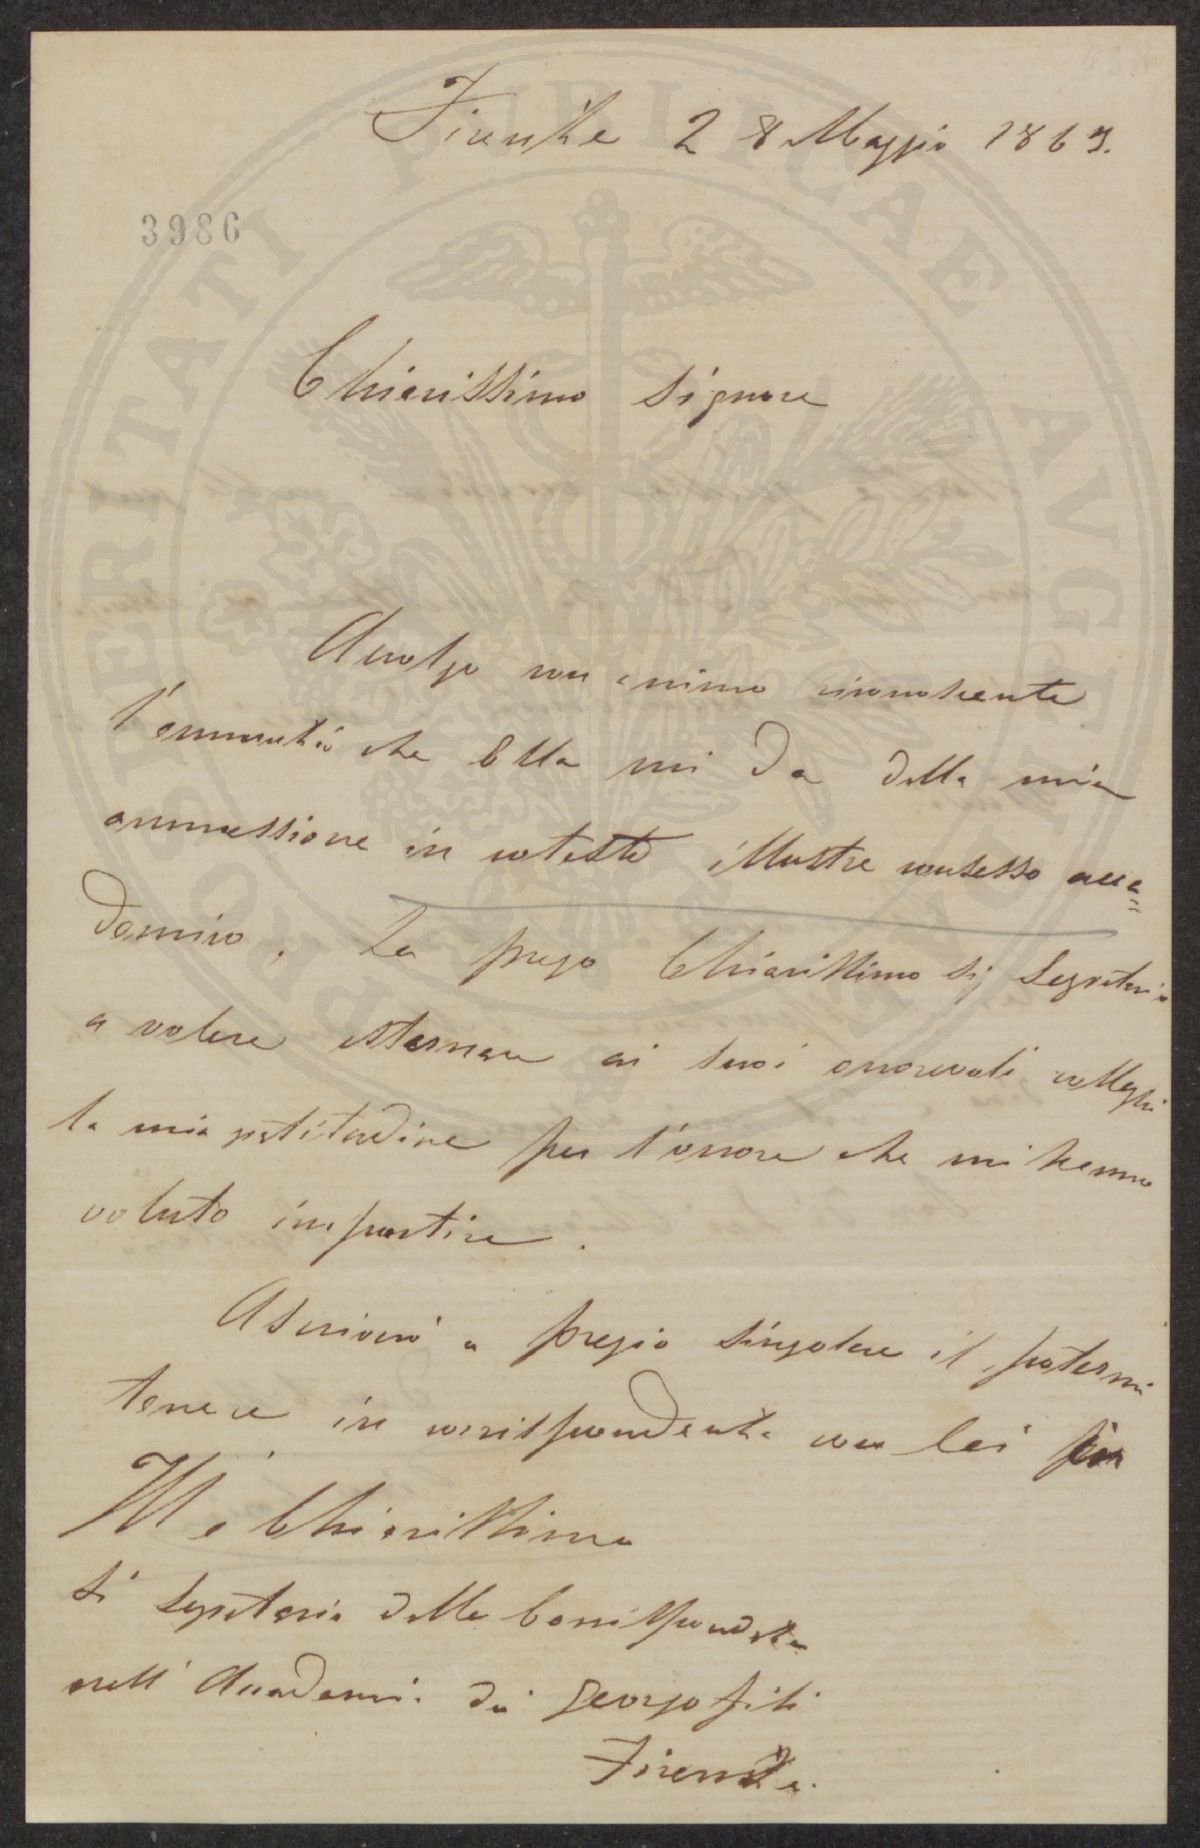 Firenze 28 Maggio 1867.
3986
Chiarissimo Signore
Accolgo con animo riconoscente
l'annunzio che Ella mi da della mia
ammessione in cotesto illustre consesso acca=
demico. La prego Chiarissimo Sig Segretario
a volere esternare ai suoi onorevoli colleghi
la mia gratitudine per l'onore che mi hanno
voluto impartire.
Ascriverò a pregio singolare il potermi
tenere in corrispondenza con lei
Ill e Chiarissimo
Si Segretario della Corrispondenza
nell' Accademia dei Georgofili
Firenze.
PROSPERITATI PVBLICAE AVGENDAE